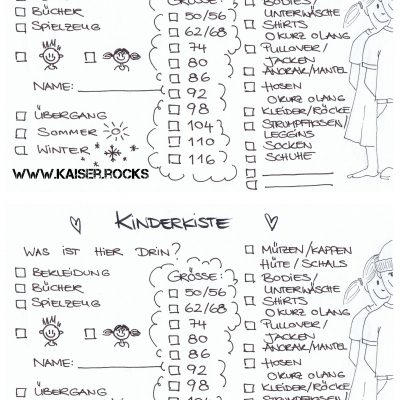 BÜCHER
SPIELZEUG
NAME:
ÜBERGANG
SOMMER
WINTER
WWW.KAISER.ROCKS
GRÖSSE:
50/56
62/68
74
80
86
92
98
104
110
116
BODIES/
UNTERWÄSCHE
SHIRTS
O KURZ O LANG
PULLOVER/
JACKEN
ANORAK/MANTEL
HOSEN
O KURZ O LANG
KLEIDER/RÖCKE
STRUMPFHOSEN/
LEGGINS
SOCKEN
SCHUHE
KINDERKISTE
WAS IST HIER DRIN?
BEKLEIDUNG
BÜCHER
SPIELZEUG
NAME:
ÜBERGANG
GRÖSSE:
50/56
62/68
74
80
86
92
98
104
MÜTZEN/KAPPEN
HÜTE/SCHALS
BODIES/
UNTERWÄSCHE
SHIRTS
O KURZ O LANG
PULLOVER/
JACKEN
ANORAK/MANTEL
HOSEN
O KURZ O LANG
KLEIDER/RÖCKE
STRUMPFHOSEN/